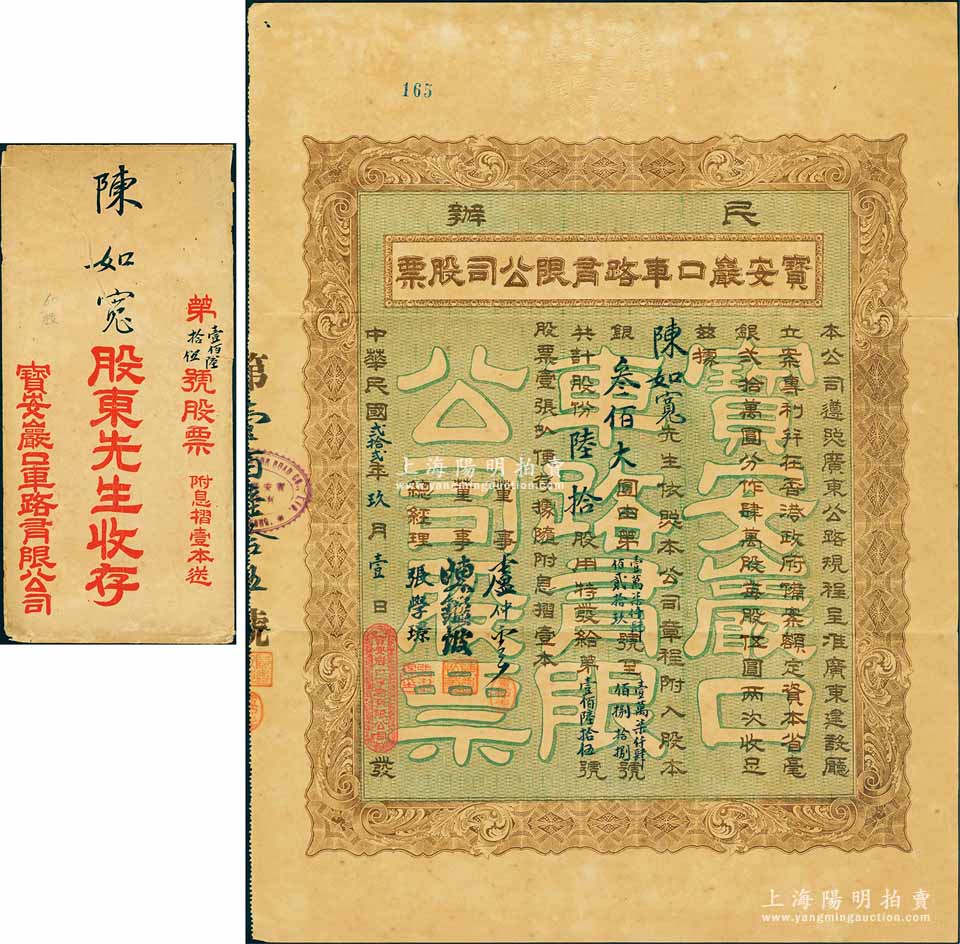 陳如寬股東先生收存
第壹佰陸拾伍號股票 附息摺壹本送
寶安巖口車路有限公司
165
民辦
寶安巖口車路有限公司股票
本公司遵照廣東公路規程呈准廣東建設廳
立案專利并在香港政府備案額定資本省毫
銀弍拾萬圓分作肆萬股每股伍圓兩次收足
茲據
陳如寬先生依照本公司章程附入股本
銀叁佰大圓由第壹萬柒仟肆佰貳拾玖號至壹萬柒仟肆佰捌拾捌號
共計股份陸拾股用特發給第壹佰陸拾伍號
股票壹張收執為據隨附息摺壹本
董事 盧仲雲
董事
總經理 張學璟
中華民國弍拾弍年玖月壹日發
第壹百陸拾伍號
寶安巖口車路有限公司股票
上海陽明拍賣
www.yangmingauction.com
上海陽明拍賣
www.yangmingauction.com